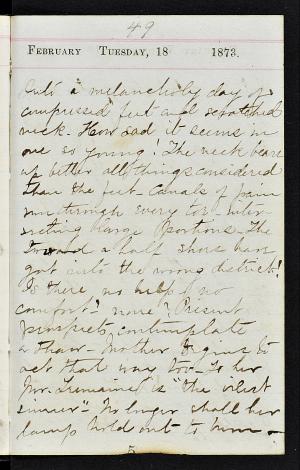 49
FEBRUARY TUESDAY, 18 1873.
Quite a melancholy day of
compressed feet and scratched
neck. How sad it seems in
one so young! The neck bears
up better all things considered
than the feet. Canals of pain
run through every toe - inter-
secting large portions. The
two and a half shoes have
got into the wrong district!
Is there no help? no
comfort? none? Present
prospects contemplate
a thaw - Mother begins to
act that way too - To her
Mr. is "the vilest
sinner". No longer shall her
lamp hold out to burn -